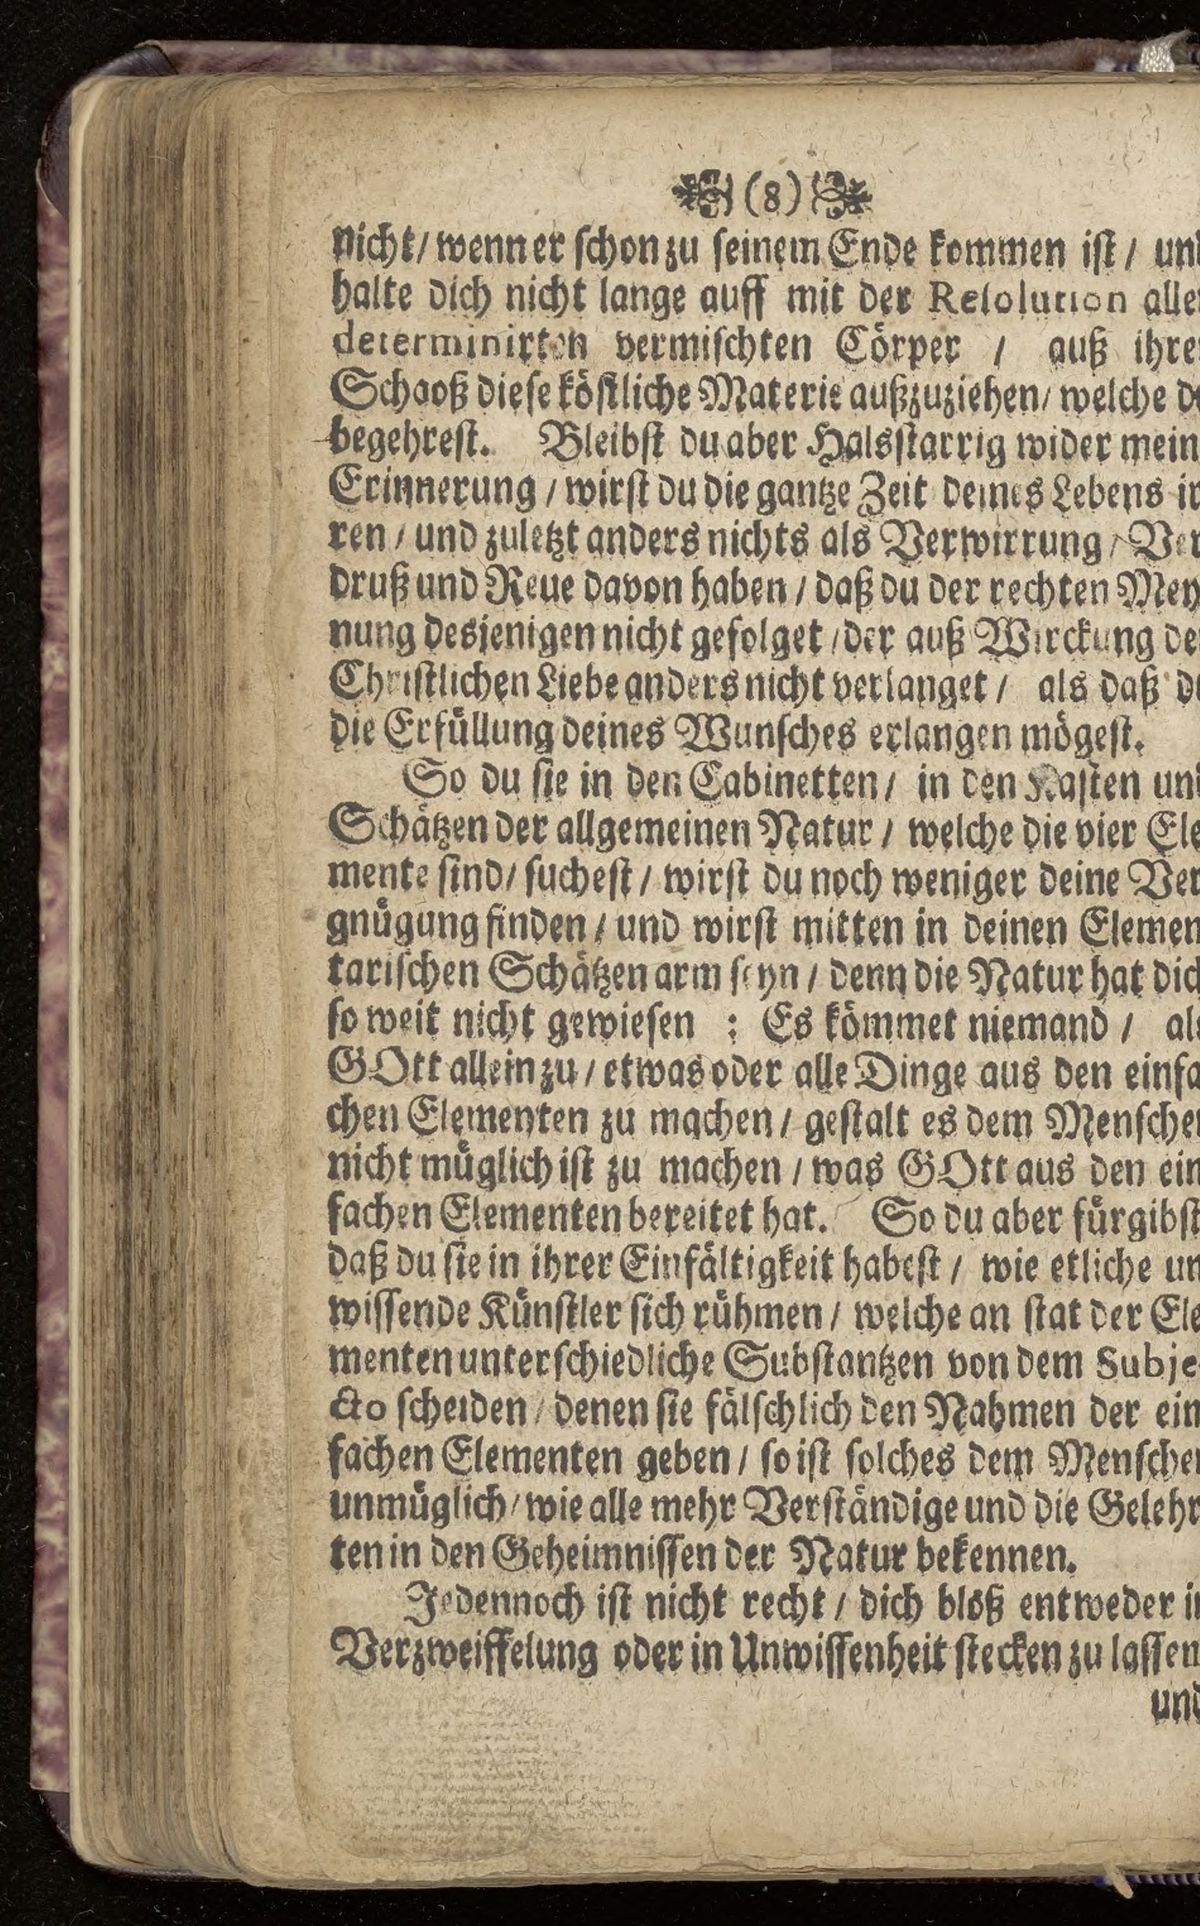 (8)
nicht/ wenn er schon zu seinem Ende kommen ist / und
halte dich nicht lange auff mit der Resolution aller
determinirten vermischten Cörper / auß ihrer
Schaoß diese köstliche Materie außzuziehen/ welche du
begehrest. Bleibst du aber Halsstarrig wider mein
Erinnerung / wirst du die gantze Zeit deines Lebens ir
ren / und zuletzt anders nichts als Verwirrung / Ver
druß und Reue davon haben / daß du der rechten Mey
nung desjenigen nicht gefolget / der auß Wirckung der
Christlichen Liebe anders nicht verlanget / als daß du
die Erfüllung deines Wunsches erlangen mögest.
So du sie in den Cabinetten / in den Kasten und
Schätzen der allgemeinen Natur / welche die vier Ele
mente sind/ suchest / wirst du noch weniger deine Ver
gnügung finden / und wirst mitten in deinen Elemen
tarischen Schätzen arm seyn / denn die Natur hat dich
so weit nicht gewiesen : Es kömmet niemand / als
GOtt allein zu / etwas oder alle Dinge aus den einfa
chen Elementen zu machen / gestalt es dem Menschen
nicht müglich ist zu machen / was GOtt aus den ein
fachen Elementen bereitet hat. So du aber fürgibst
daß du sie in ihrer Einfältigkeit habest / wie etliche un
wissende Künstler sich rühmen / welche an stat der Ele
menten unterschiedliche Substantzen von dem Subje
cto scheiden / denen sie fälschlich den Nahmen der ein
fachen Elementen geben / so ist solches dem Menschen
unmüglich / wie alle mehr Verständige und die Gelehr
ten in den Geheimnissen der Natur bekennen.
Jedennoch ist nicht recht / dich bloß entweder in
Verzweiffelung oder in Unwissenheit stecken zu lassen
und